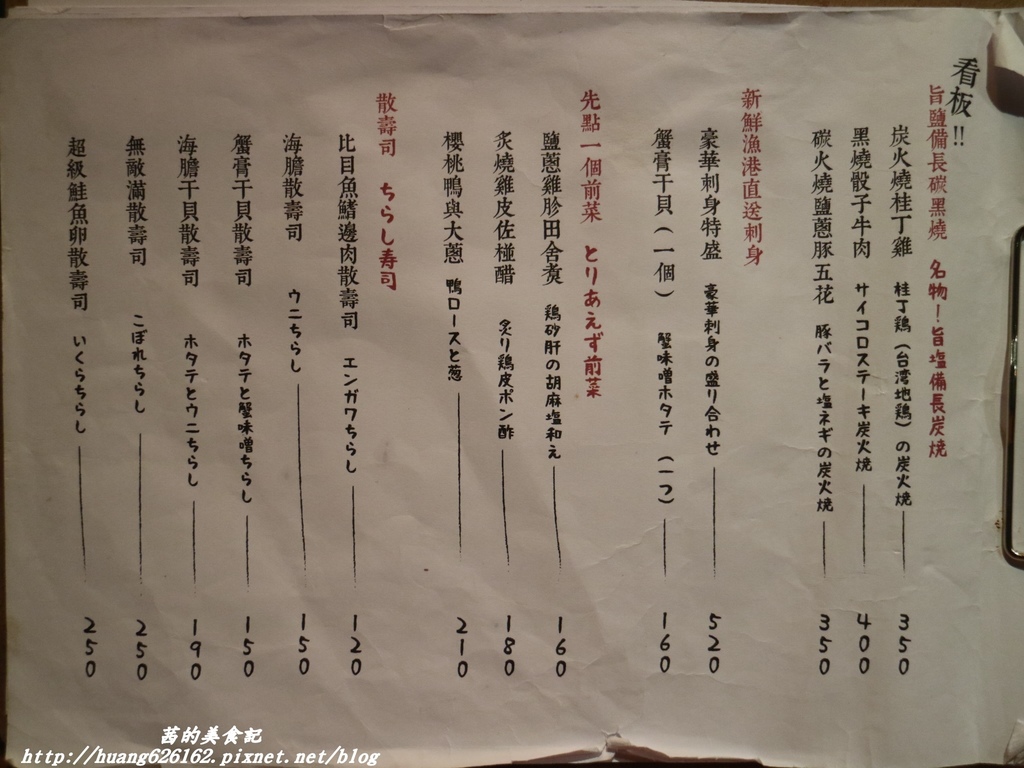 看板!!
旨鹽備長碳黑燒 名物!旨塩備長炭焼
炭火燒桂丁雞 桂丁鶏(台湾地鶏)の炭火焼 350
黑燒骰子牛肉 サイコロステーキ炭火焼 400
碳火燒鹽蔥豚五花 豚バラと塩ネギの炭火焼 350
新鮮漁港直送刺身
豪華刺身特盛 豪華刺身の盛り合わせ 520
蟹膏干貝(一個) 蟹味噌ホタテ(一つ) 160
先點一個前菜 とりあえず前菜
鹽蔥雞胗田舍煮 鶏砂肝の胡麻塩和え 160
炙燒雞皮佐椪醋 炙り鶏皮ポン酢 180
櫻桃鴨與大蔥 鴨ロースと葱 210
散壽司 ちらし寿司
比目魚鰭邊肉散壽司 エンガワちらし 120
海膽散壽司 ウニちらし 150
蟹膏干貝散壽司 ホタテと蟹味噌ちらし 150
海膽干貝散壽司 ホタテとウニちらし 190
無敵滿散壽司 こぼれちらし 250
超級鮭魚卵散壽司 いくらちらし 250
萵的美食記
http://huang626162.pixnet.net/blog